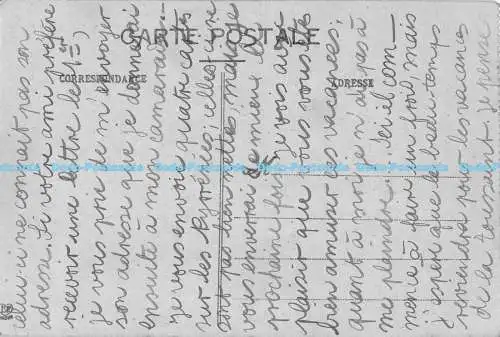 CARTE POSTALE
CORRESPONDANCE
ADRESSE
celui-ci ne connait pas son
adresse. Si votre amie préfère
recevoir une lettre le 1er =)
je vous prie de m'envoyer
son adresse que je donnerai
ensuite à mon camarade.
je vous envoie quatre cartes
sur les Pyrénées; celles-ci ne
sont pas bien nattes, mais je
vous enverrai de mieux la
prochaine fois. Je vois avec
plaisir que vous vous êtes
bien amusée ces vacances;
quant à moi je n'ai pas à
me plaindre. Ici il com-
mence à faire un froid, mais
j'espère que le beau temps
reviendra pour les vacances
de la Toussaint. Je pense